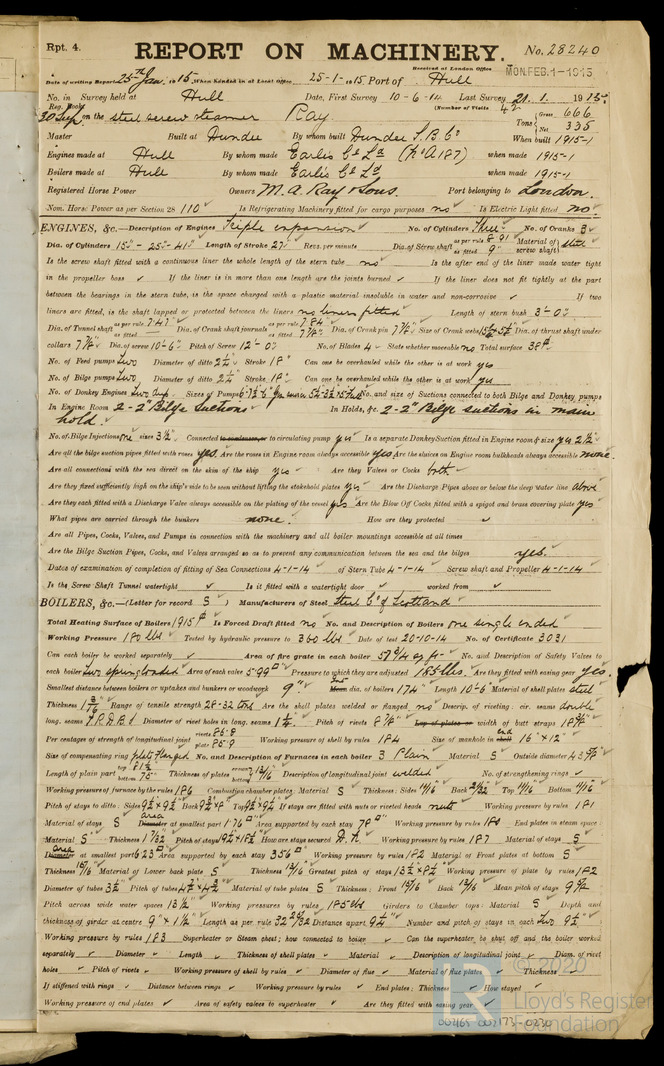 Rpt. 4.
REPORT ON MACHINERY. No. 28240
Received at London Office MON. FEB. 1 - 1915
Date of writing Report 25th Jan. 1915 When handed in at Local Office 25-1-1915 Port of Hull
No. in Survey held at Hull Date, First Survey 10-6-14 Last Survey 21.1. 1915
Reg. Book. (Number of Visits 42
on the steel screw steamer Ray Tons Gross 666 Net 335
Master Built at Dundee By whom built Dundee S.B. Co When built 1915-1
Engines made at Hull By whom made Earle's Co Ld (No A187) when made 1915-1
Boilers made at Hull By whom made Earle's Co Ld when made 1915-1
Registered Horse Power Owners M.A. Ray & Sons. Port belonging to London
Nom. Horse Power as per Section 28 110 Is Refrigerating Machinery fitted for cargo purposes no Is Electric Light fitted no
ENGINES, &c.—Description of Engines Triple expansion No. of Cylinders Three No. of Cranks 3
Dia. of Cylinders 15"-25"-41" Length of Stroke 27" Revs. per minute Dia. of Screw shaft as per rule 8.91 as fitted 9" Material of screw shaft steel
Is the screw shaft fitted with a continuous liner the whole length of the stern tube no Is the after end of the liner made water tight
in the propeller boss ✓ If the liner is in more than one length are the joints burned ✓ If the liner does not fit tightly at the part
between the bearings in the stern tube, is the space charged with a plastic material insoluble in water and non-corrosive ✓ If two
liners are fitted, is the shaft lapped or protected between the liners no liners fitted Length of stern bush 3'-0"
Dia. of Tunnel shaft as per rule 7.47 as fitted Dia. of Crank shaft journals as per rule 7.84 as fitted 7 7/8" Dia. of Crank pin 7 7/8" Size of Crank webs Dia. of thrust shaft under
collars 7 7/8" Dia. of screw 10'-6" Pitch of Screw 12'-0" No. of Blades 4 State whether moveable no Total surface 38
No. of Feed pumps two Diameter of ditto 2 1/2" Stroke 18" Can one be overhauled while the other is at work yes
No. of Bilge pumps two Diameter of ditto 2 1/2" Stroke 18" Can one be overhauled while the other is at work yes
No. of Donkey Engines two Sizes of Pumps No. and size of Suctions connected to both Bilge and Donkey pumps
In Engine Room 2-2" Bilge Suctions In Holds, &c. 2-2" Bilge suctions in main
hold.
No. of Bilge Injections one sizes 3 1/2" Connected to condenser, or to circulating pump yes Is a separate Donkey Suction fitted in Engine room & size yes 2 1/2"
Are all the bilge suction pipes fitted with roses yes Are the roses in Engine room always accessible yes Are the sluices on Engine room bulkheads always accessible none
Are all connections with the sea direct on the skin of the ship yes Are they Valves or Cocks both
Are they fixed sufficiently high on the ship's side to be seen without lifting the stokehold plates yes Are the Discharge Pipes above or below the deep water line above
Are they each fitted with a Discharge Valve always accessible on the plating of the vessel yes Are the Blow Off Cocks fitted with a spigot and brass covering plate yes
What pipes are carried through the bunkers none. How are they protected ✓
Are all Pipes, Cocks, Valves, and Pumps in connection with the machinery and all boiler mountings accessible at all times
Are the Bilge Suction Pipes, Cocks, and Valves arranged so as to prevent any communication between the sea and the bilges yes.
Dates of examination of completion of fitting of Sea Connections 4-1-14 of Stern Tube 4-1-14 Screw shaft and Propeller 4-1-14
Is the Screw Shaft Tunnel watertight ✓ Is it fitted with a watertight door ✓ worked from ✓
BOILERS, &c.—(Letter for record S) Manufacturers of Steel Steel Co of Scotland
Total Heating Surface of Boilers 1915 Is Forced Draft fitted no No. and Description of Boilers one single ended
Working Pressure 180 lbs Tested by hydraulic pressure to 360 lbs Date of test 20-10-14 No. of Certificate 3031
Can each boiler be worked separately ✓ Area of fire grate in each boiler 57 3/4 sq ft No. and Description of Safety Valves to
each boiler two spring loaded Area of each valve 5.99 Pressure to which they are adjusted 185 lbs. Are they fitted with easing gear yes.
Smallest distance between boilers or uptakes and bunkers or woodwork 9" dia. of boilers 174" Length 10'-6 Material of shell plates steel
Thickness 1 3/16 Range of tensile strength 28-32 tons Are the shell plates welded or flanged no Descrip. of riveting: cir. seams double
long. seams T.R.D.B.S Diameter of rivet holes in long. seams 1 1/4" Pitch of rivets 8 7/8" Lap of plates or width of butt straps 18 3/4"
Per centages of strength of longitudinal joint rivets 85.8 plate 85.9 Working pressure of shell by rules 184 Size of manhole in end 16" x 12"
Size of compensating ring plate flanged No. and Description of Furnaces in each boiler 3 Plain Material S Outside diameter 43 5/8"
Length of plain part top bottom 75" Thickness of plates crown bottom Description of longitudinal joint welded No. of strengthening rings ✓
Working pressure of furnace by the rules 186 Combustion chamber plates: Material S Thickness: Sides 11/16 Back 21/32 Top 11/16 Bottom 11/16
Pitch of stays to ditto: Sides 9 1/2 x 9 1/2 Back 9 1/2 x 8 Top 9 1/2 x 9 1/2 If stays are fitted with nuts or riveted heads nuts Working pressure by rules 181
Material of stays S area at smallest part 1.76 Area supported by each stay 78 Working pressure by rules 180 End plates in steam space
Material S Thickness 1 7/32 Pitch of stays 19 1/2 x 18 1/2 How are stays secured D.N. Working pressure by rules 187 Material of stays S
area at smallest part 6.23 Area supported by each stay 356 Working pressure by rules 182 Material of Front plates at bottom S
Thickness 15/16 Material of Lower back plate S Thickness 13/16 Greatest pitch of stays 13 1/2 x 8 1/2 Working pressure of plate by rules 182
Diameter of tubes 3 1/2" Pitch of tubes 4 3/4 x 4 1/2 Material of tube plates S Thickness: Front 15/16 Back 13/16 Mean pitch of stays 9 3/4
Pitch across wide water spaces 13 1/2" Working pressures by rules 185 lbs Girders to Chamber tops: Material S Depth and
thickness of girder at centre 9" x 1 1/2" Length as per rule 32 29/32 Distance apart 9 1/2" Number and pitch of stays in each two 9 1/2"
Working pressure by rules 183 Superheater or Steam chest; how connected to boiler ✓ Can the superheater be shut off and the boiler worked
separately ✓ Diameter ✓ Length ✓ Thickness of shell plates ✓ Material ✓ Description of longitudinal joint ✓ Diam. of rivet
holes ✓ Pitch of rivets ✓ Working pressure of shell by rules ✓ Diameter of flue ✓ Material of flue plates ✓ Thickness ✓
If stiffened with rings ✓ Distance between rings ✓ Working pressure by rules ✓ End plates: Thickness ✓ How stayed ✓
Working pressure of end plates ✓ Area of safety valves to superheater ✓ Are they fitted with easing gear ✓
© 2020
LR Lloyd's Register
Foundation
002165-002173-0230